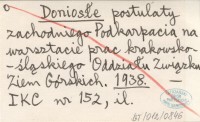 Doniosłe postulaty
zachodniego Podkarpacia na
warsztacie prac krakowsko-
-śląskiego Oddziału Związku
Ziem Górskich. 1938. —
IKC nr 152, il.